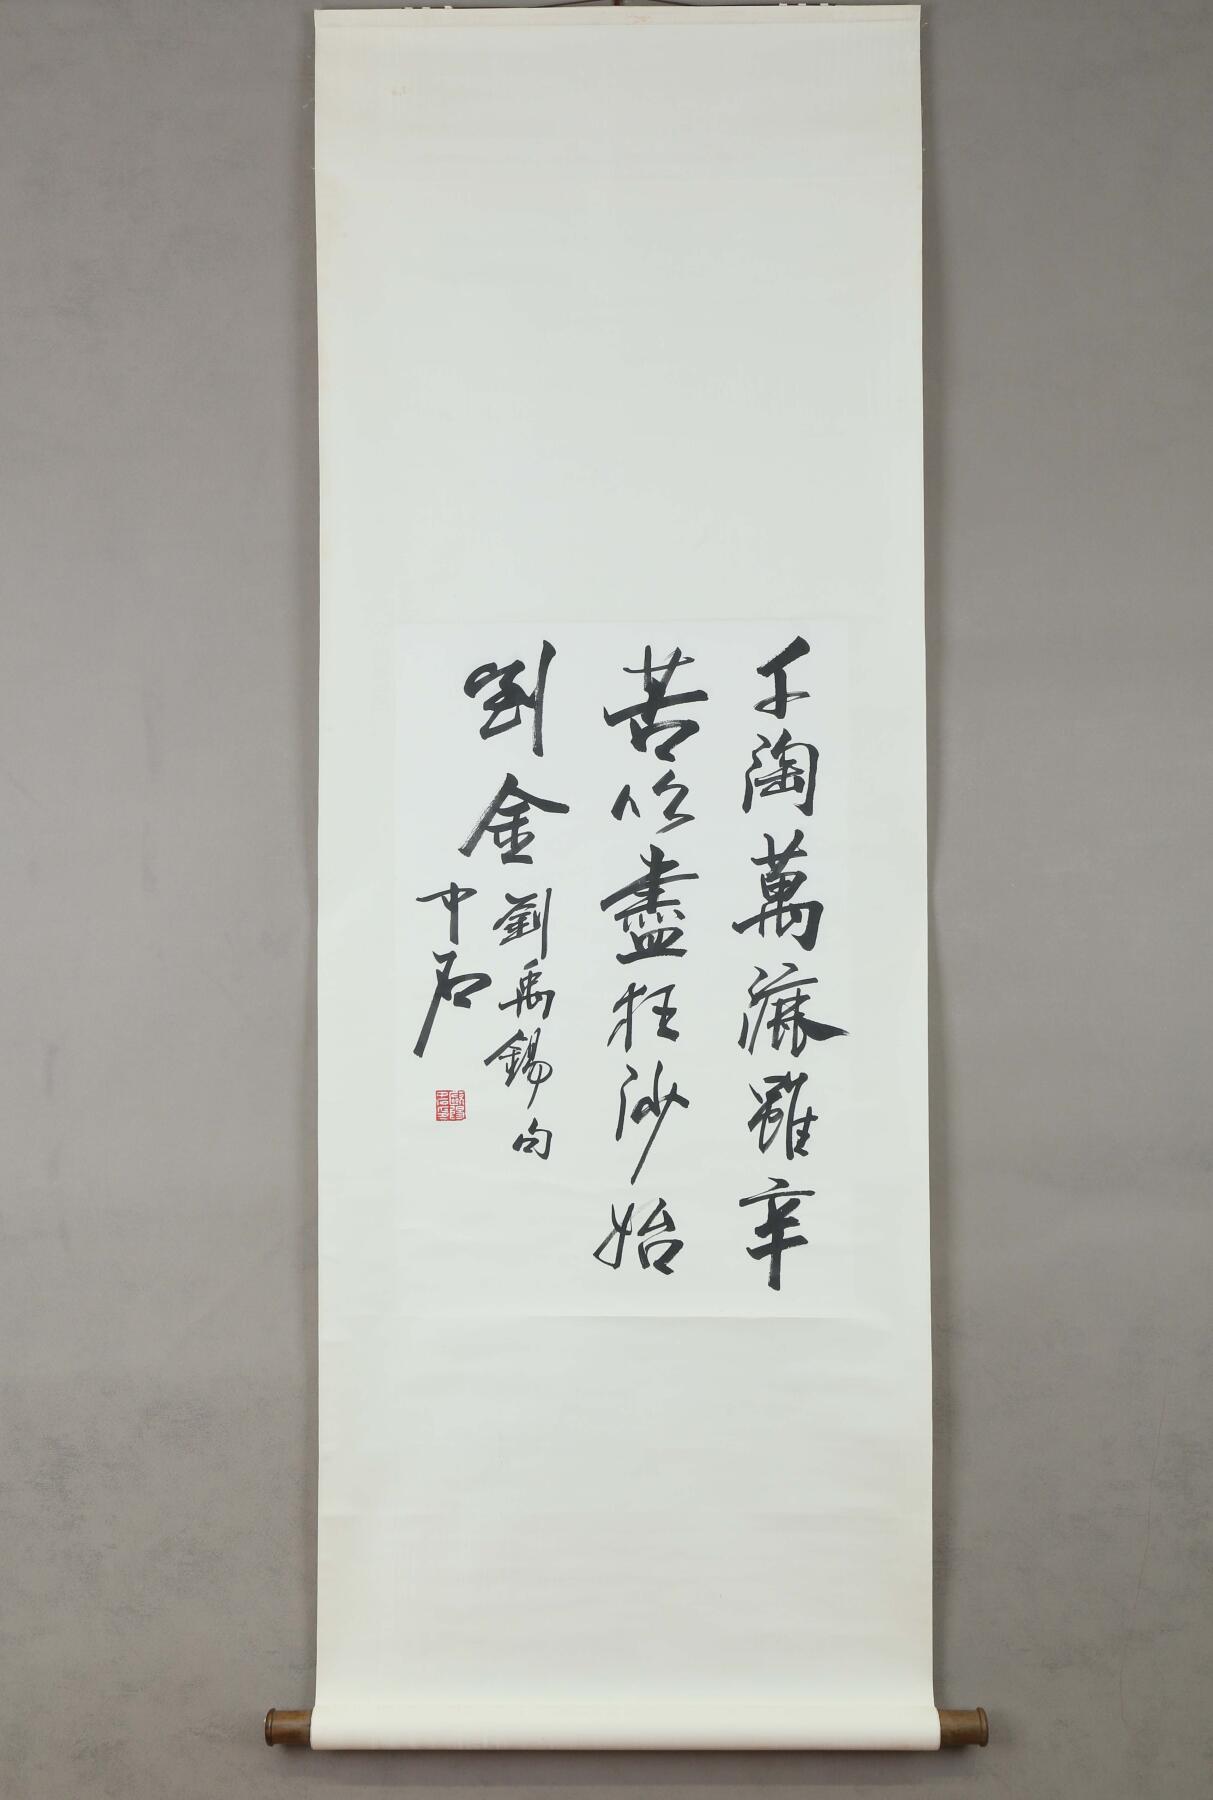 千淘萬漉雖辛
苦吹盡狂沙始
到金
劉禹錫句
中石